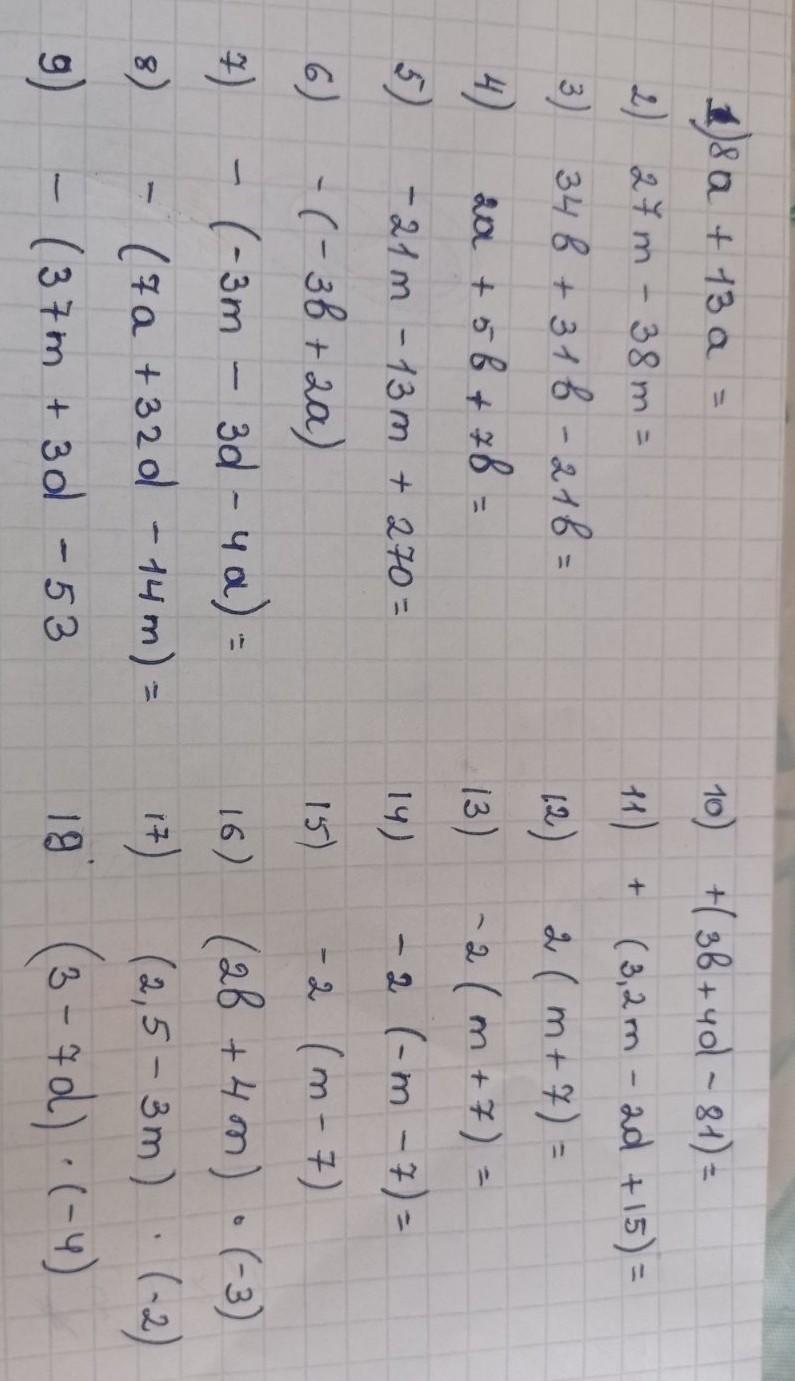 1) 8a + 13a =
2) 27m - 38m =
3) 34b + 31b - 21b =
4) 2a + 5b + 7b =
5) - 21m - 13m + 270 =
6) - (- 3b + 2a)
7) - (-3m - 3d - 4a) =
8) - (7a + 32d - 14m) =
9) - (37m + 3d - 53
10) +(3b + 4d - 81) =
11) + (3,2m - 2d + 15) =
12) 2 (m + 7) =
13) -2 (m + 7) =
14) - 2 (-m - 7) =
15) - 2 (m - 7)
16) (2b + 4m) · (-3)
17) (2,5 - 3m) · (-2)
18. (3 - 7d) · (-4)